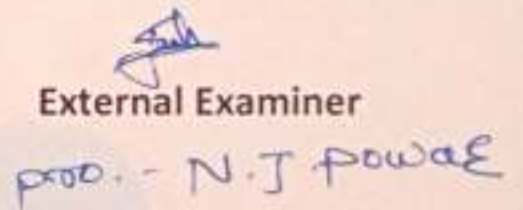 External Examiner
proo. - N.J. powar